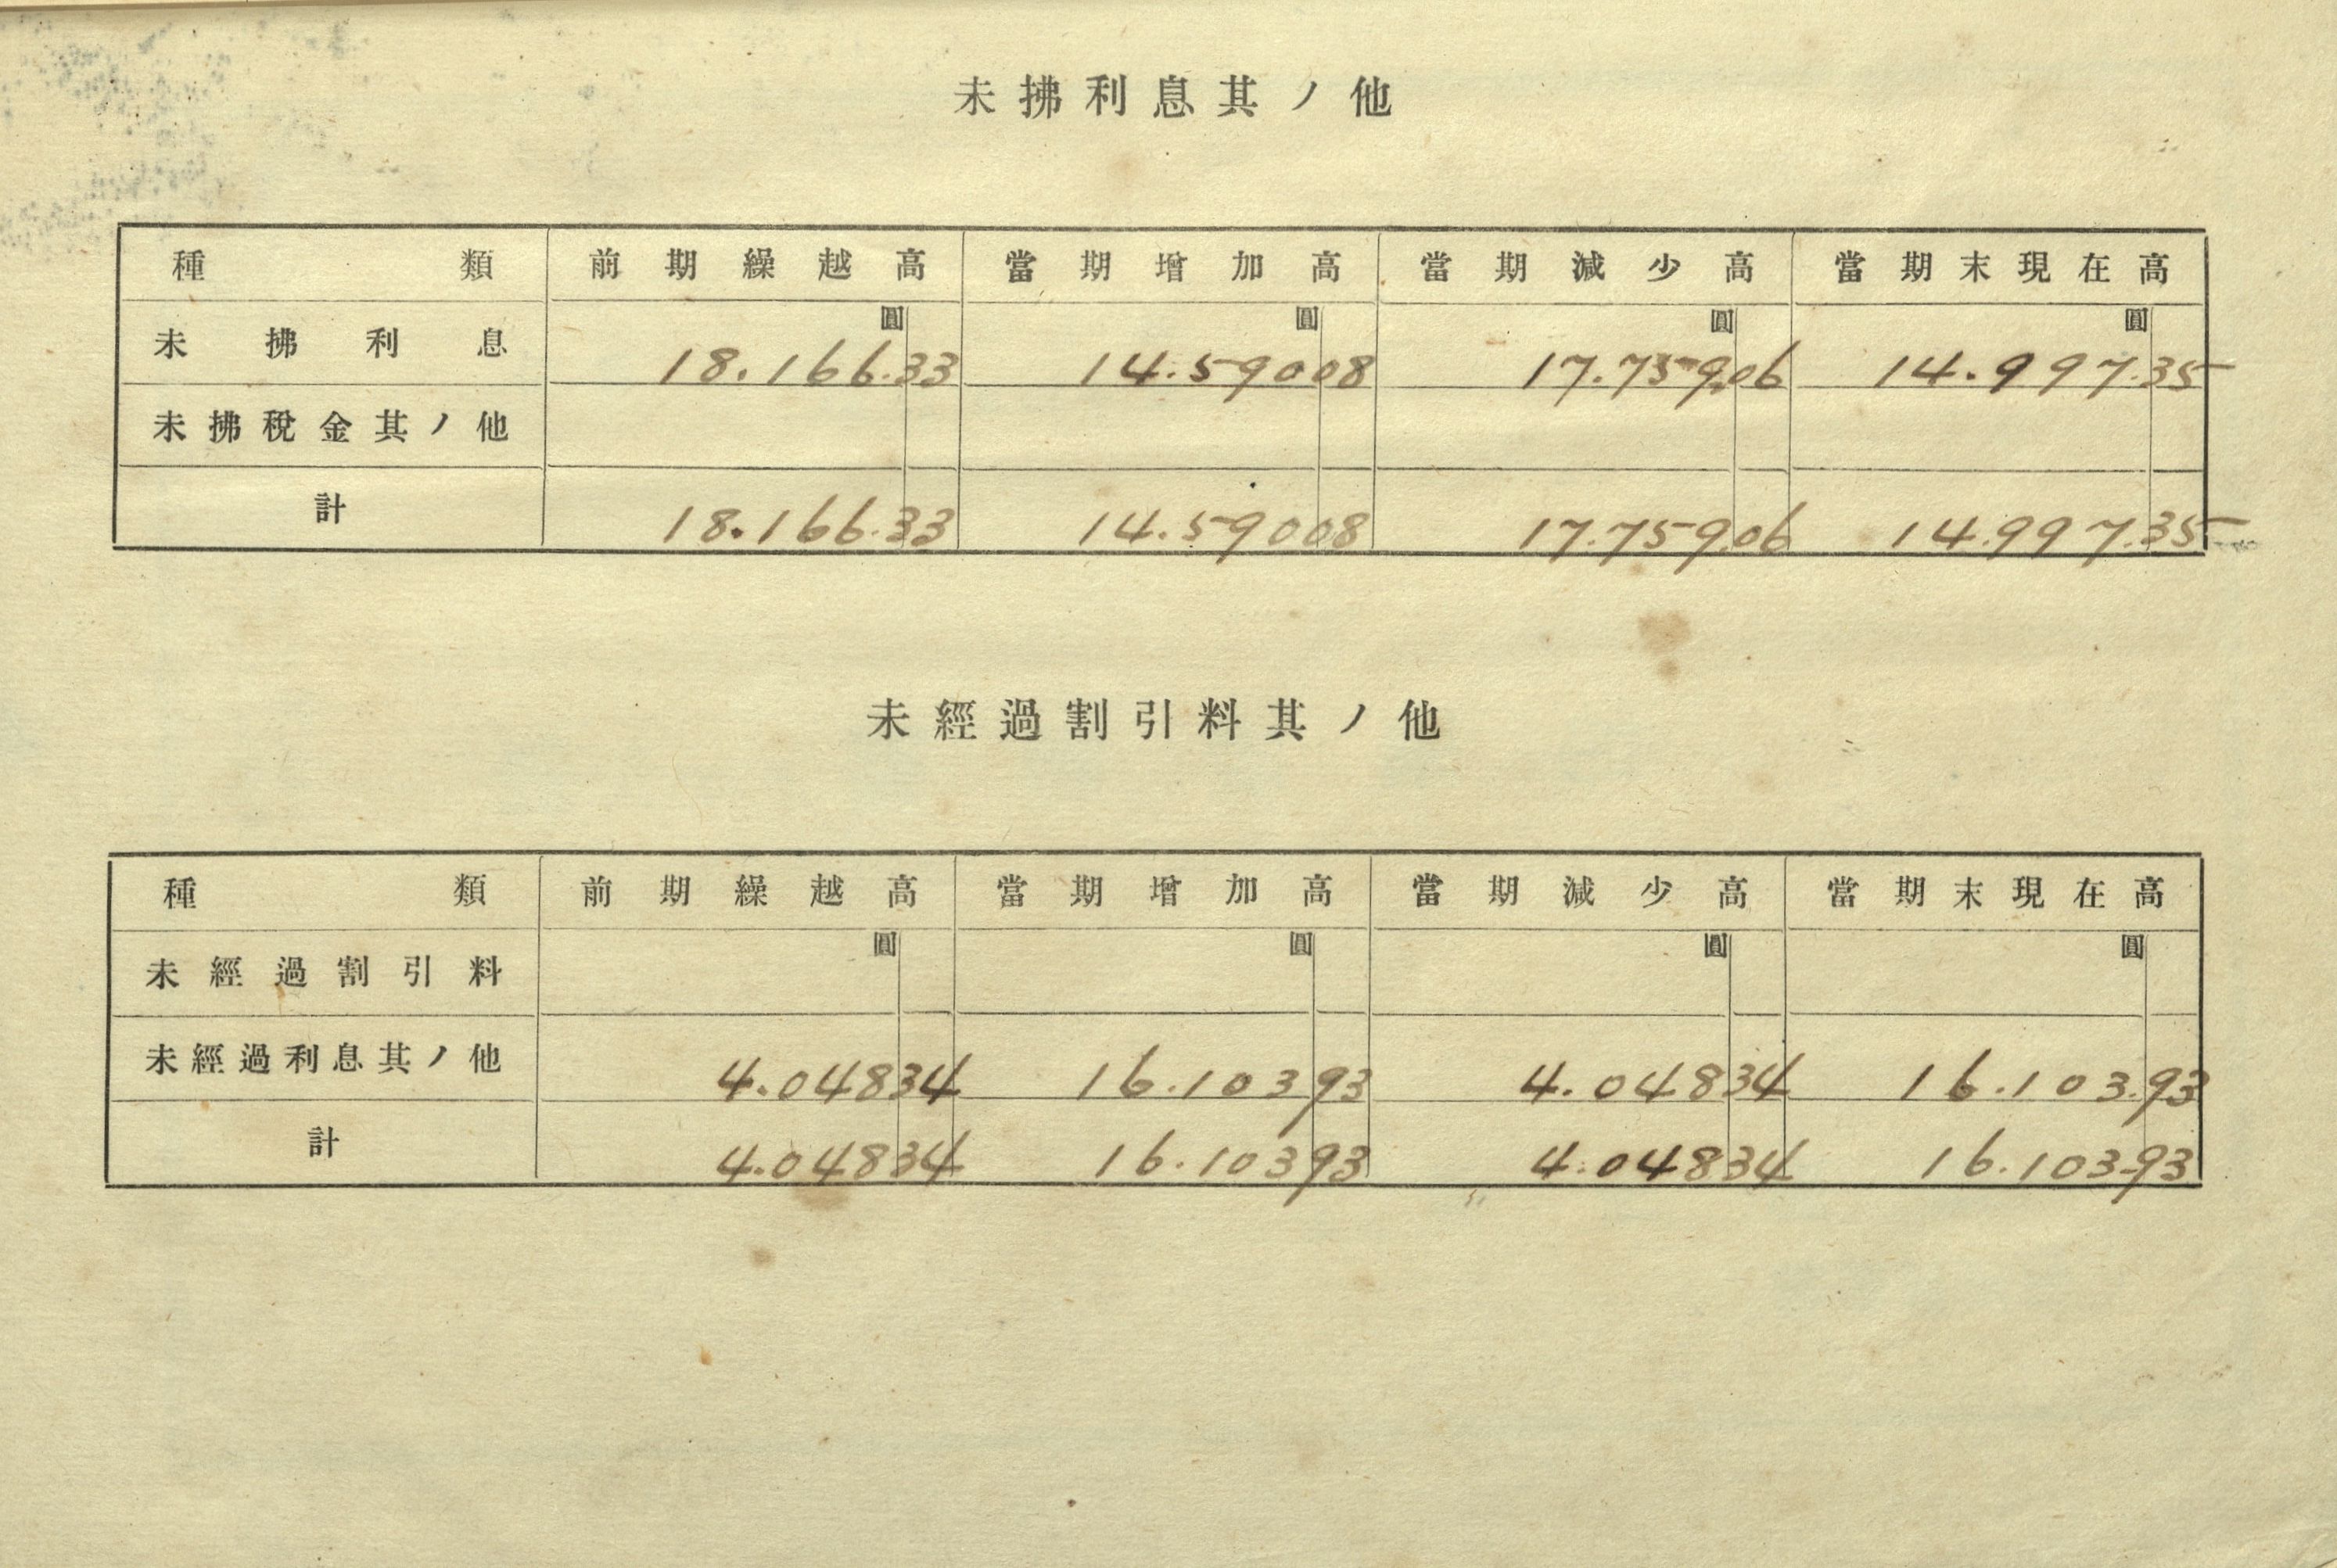 未拂利息其ノ他
種類 前期繰越高 當期增加高 當期減少高 當期末現在高
圓 圓 圓 圓
未拂利息 18.166.33 14.59008 17.759.06 14.997.35
未拂稅金其ノ他
計 18.166.33 14.59008 17.759.06 14.997.35
未經過割引料其ノ他
種類 前期繰越高 當期增加高 當期減少高 當期末現在高
圓 圓 圓 圓
未經過割引料
未經過利息其ノ他 4.04834 16.10393 4.04834 16.103.93
計 4.04834 16.10393 4.04834 16.103.93